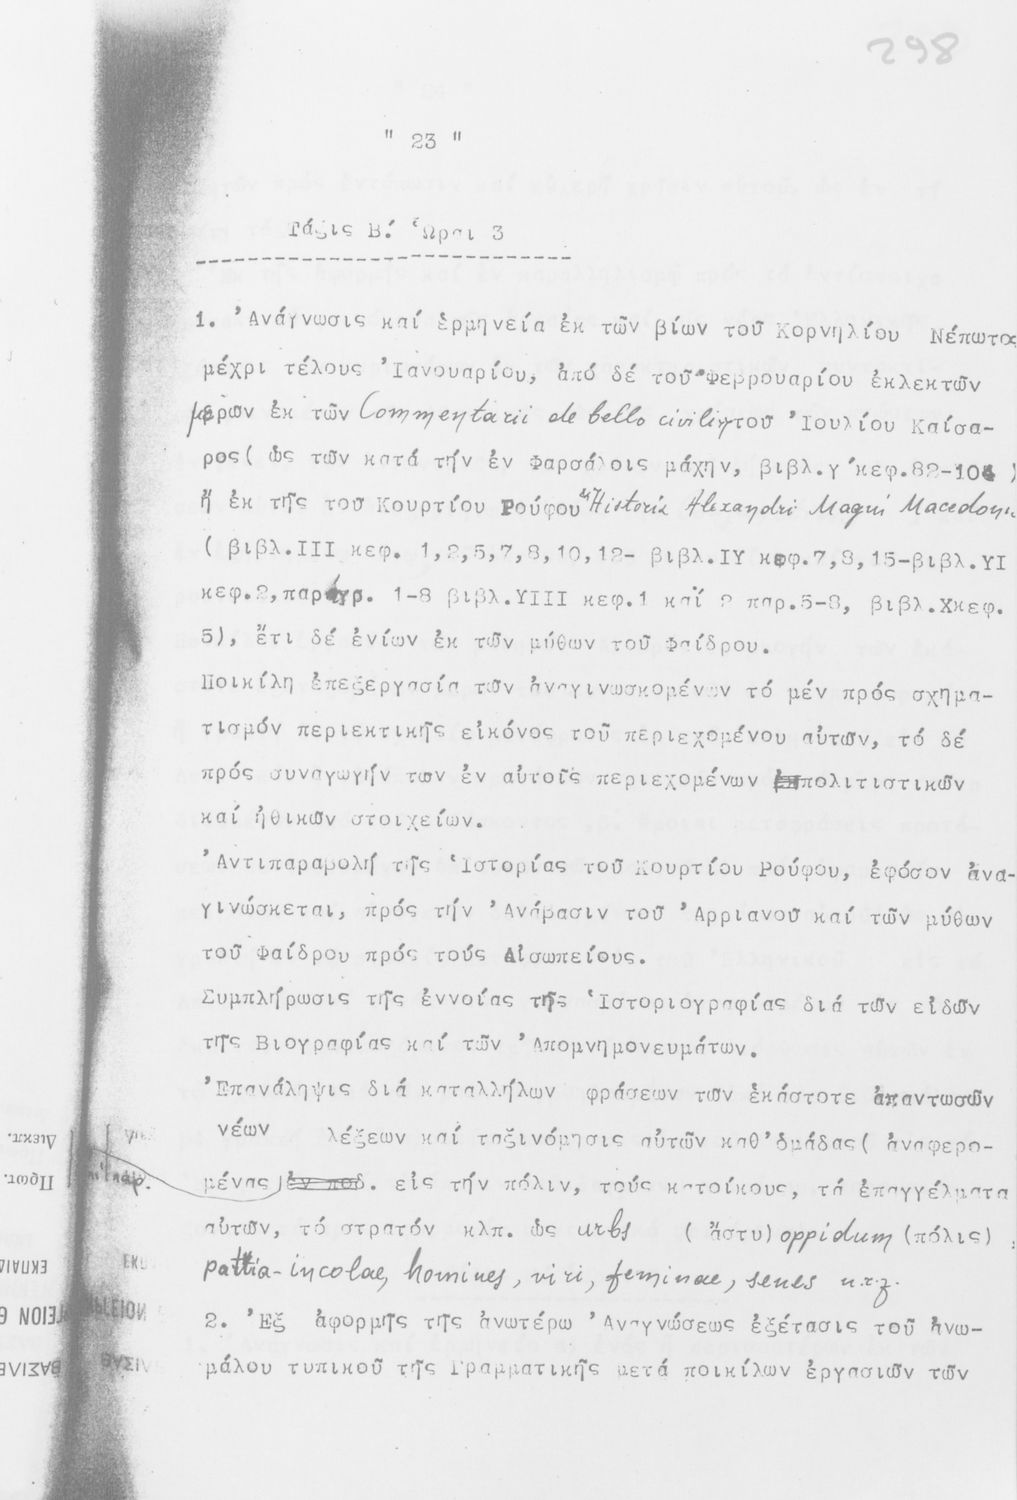 298
" 23 "
Τάξις Β΄. Ὧραι 3
1. Ἀνάγνωσις καί ἑρμηνεία ἐκ τῶν βίων τοῦ Κορνηλίου Νέπωτος
μέχρι τέλους Ἰανουαρίου, ἀπό δέ τοῦ Φεβρουαρίου ἐκλεκτῶν
μερων ἐκ τῶν Commentarii de bello civili τοῦ Ἰουλίου Καίσα-
ρος( ὡς τῶν κατά τήν ἐν Φαρσάλοις μάχην, βιβλ.γ΄κεφ.82-104 )
ἤ ἐκ τῆς τοῦ Κουρτίου Ρούφου Historia Alexandri Magni Macedonis
( βιβλ.ΙΙΙ κεφ. 1,2,5,7,8,10,12- βιβλ.ΙΥ κεφ.7,8,15-βιβλ.ΥΙ
κεφ.2,παράγρ. 1-8 βιβλ.ΥΙΙΙ κεφ.1 καί 2 παρ.5-8, βιβλ.Χκεφ.
5), ἔτι δέ ἐνίων ἐκ τῶν μύθων τοῦ Φαίδρου.
Ποικίλη ἐπεξεργασία τῶν ἀναγινωσκομένων τό μέν πρός σχημα-
τισμόν περιεκτικῆς εἰκόνος τοῦ περιεχομένου αὐτῶν, τό δέ
πρός συναγωγήν των ἐν αὐτοῖς περιεχομένων πολιτιστικῶν
καί ἠθικῶν στοιχείων.
Ἀντιπαραβολή τῆς Ἱστορίας τοῦ Κουρτίου Ρούφου, ἐφόσον ἀνα-
γινώσκεται, πρός τήν Ἀνάβασιν τοῦ Ἀρριανοῦ καί τῶν μύθων
τοῦ Φαίδρου πρός τούς Αἰσωπείους.
Συμπλήρωσις τῆς ἐννοίας τῆς Ἱστοριογραφίας διά τῶν εἰδῶν
τῆς Βιογραφίας καί τῶν Ἀπομνημονευμάτων.
Ἐπανάληψις διά καταλλήλων φράσεων των ἑκάστοτε ἀπαντωσῶν
νέων λέξεων καί ταξινόμησις αὐτῶν καθ'ὁμάδας( ἀναφερο-
μένας ἐν ποδ. εἰς τήν πόλιν, τούς κατοίκους, τά ἐπαγγέλματα
αὐτων, τό στρατόν κλπ. ὡς urbs ( ἄστυ) oppidum (πόλις) ,
patria- incolae, homines, viri, feminae, senes κ.τ.λ.
2. Ἐξ ἀφορμῆς τῆς ἀνωτέρω Ἀναγνώσεως ἐξέτασις τοῦ ἀνω-
μάλου τυπικοῦ τῆς Γραμματικῆς μετά ποικίλων ἐργασιῶν τῶν
Διεκπ.
Πρωτ.